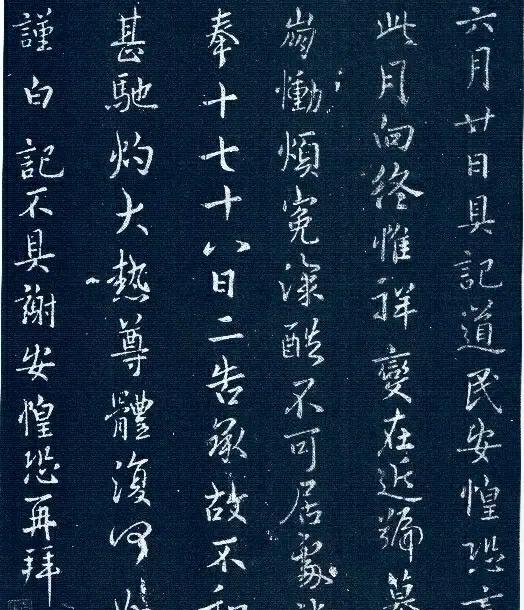 六月廿日具記道民安惶恐言
此月向終惟祥變在近號慕
崩慟煩冤深酷不可居處
奉十七十八日二告承故不和
甚馳灼大熱尊體復何
謹白記不具謝安惶恐再拜